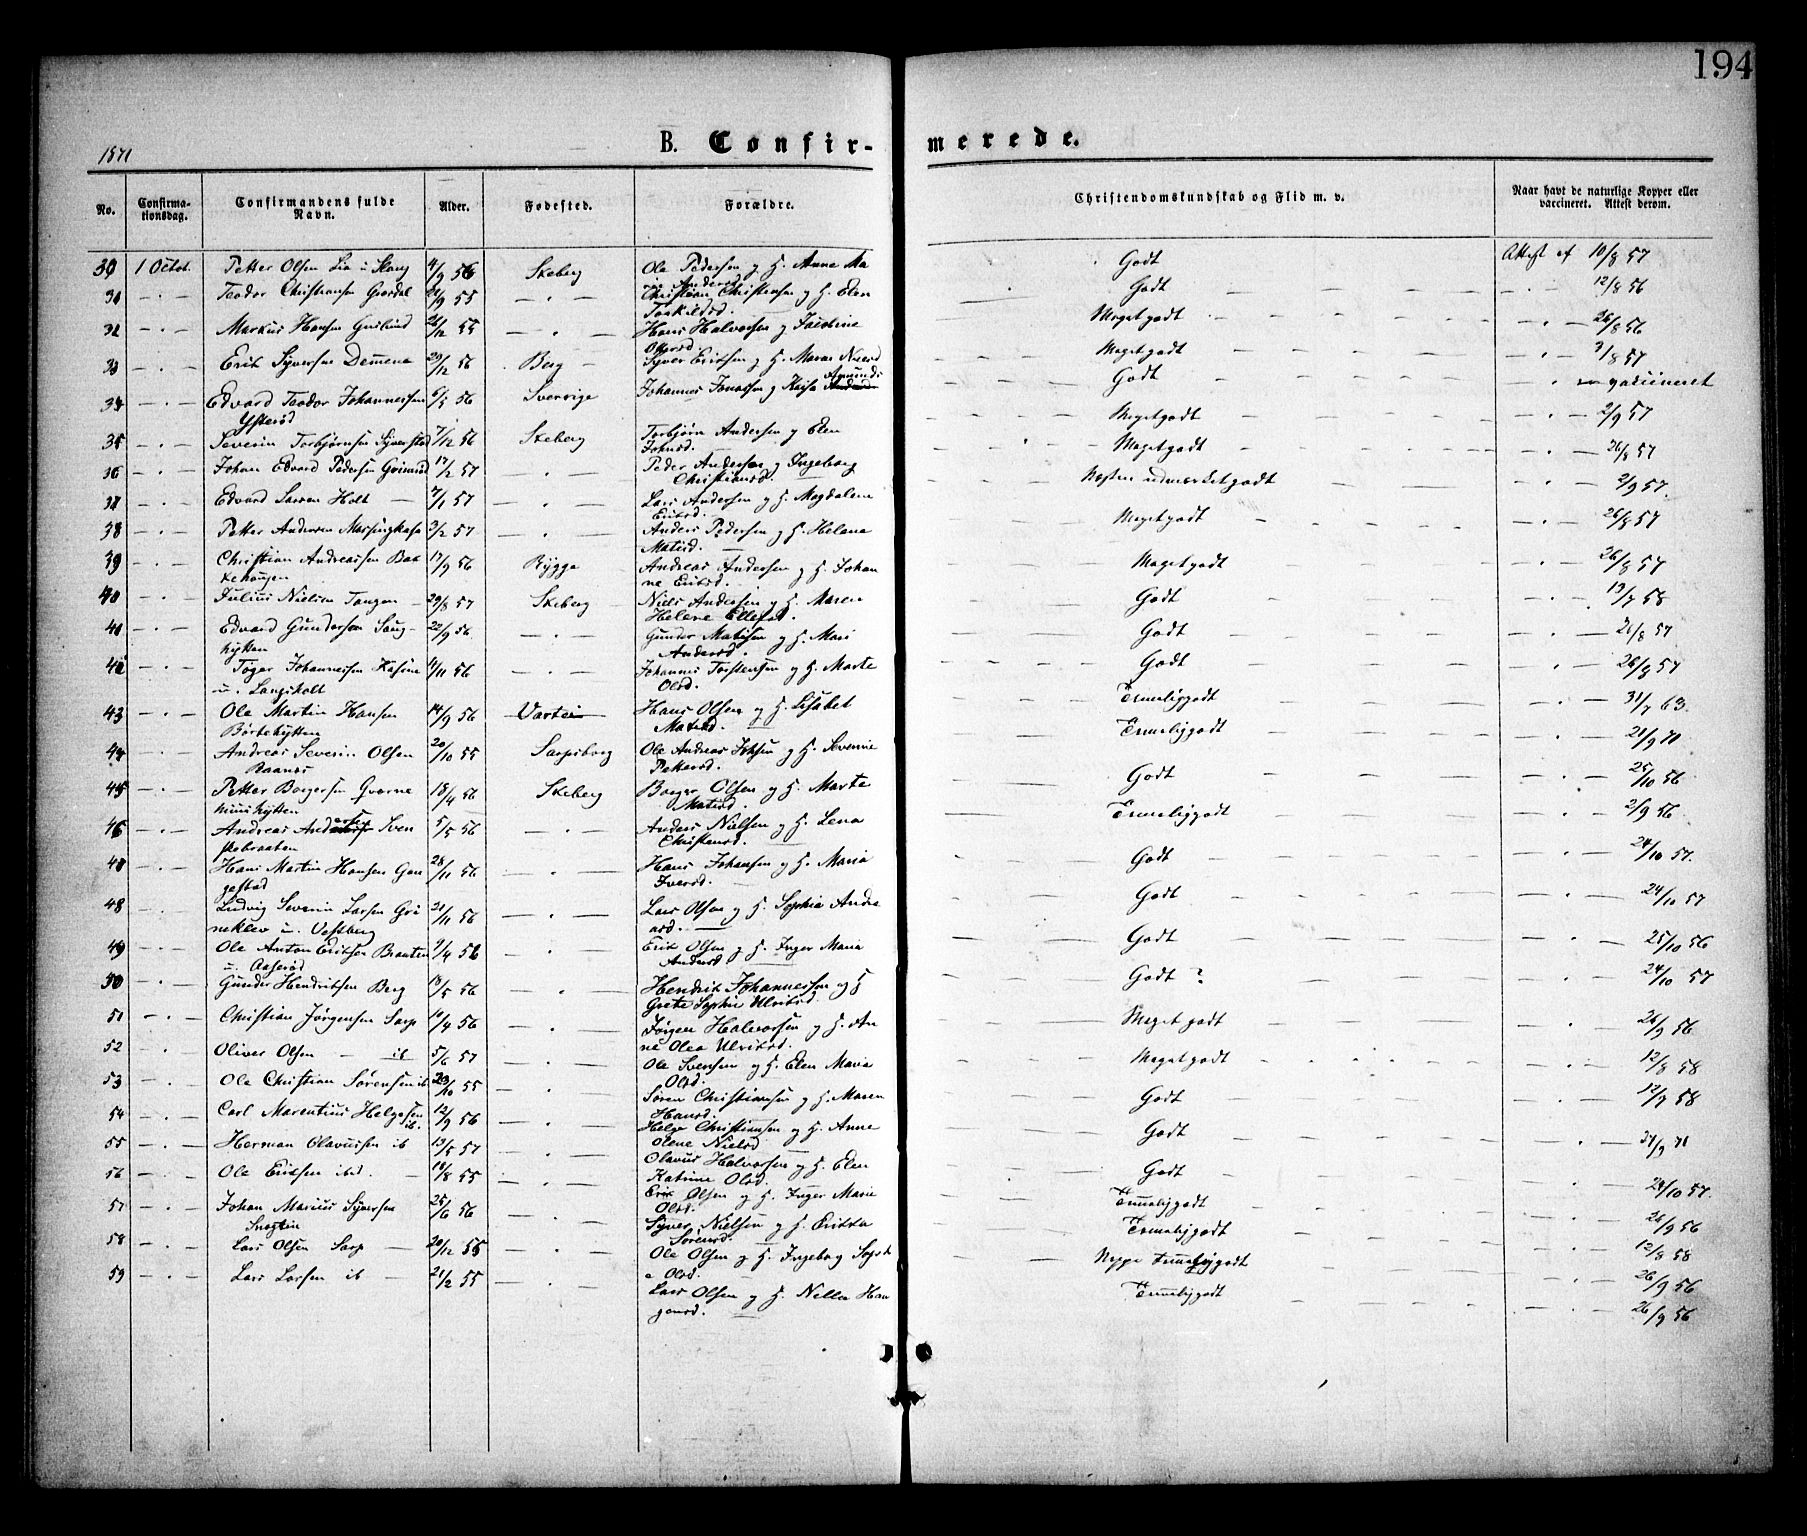 194
1871
B. Confir-
merede.
No.
Confirma-
tionsdag.
Confirmandens fulde
Navn.
Alder.
Fødested.
Forældre.
Christendomskundskab og Flid m. v.
Naar havt de naturlige Kopper eller
vaccineret. Attest derom.
30 1 Octob. Petter Olsen Lie u Skaug 4/9 56 Skeberg Ole Pedersen og H. Anne Ma Godt Attest af 10/8 57
Andersd
31 - . - Teodor Christiansen Grødal 21/9 55 - . - Christian Christensen og H. Elen Godt - . - 12/8 56
Torkildsd.
32 - . - Markus Hansen Guslund 26/12 55 - . - Hans Halvorsen og Meget godt - . - 26/8 56
Olsd.
33 - . - Erik Syversen 29/12 56 Berg Syver Eriksen og H. Maren Nielsd Meget godt - . - 3/8 57
34 - . - Edvard Teodor Johannessen 6/5 56 Sverrige Johannes Jonassen og Kaisa Amunds Godt . vaccineret
Ysterød
35 - . - Severin Torbjørnsen Syverstad 7/12 56 Skeberg Torbjørn Andersen og Elen Meget godt - . - 2/9 57
Johnsd.
36 - . - Johan Edvard Pedersen Grimsrød 17/2 57 - . - Peder Andersen og Ingeborg Meget godt - . - 26/8 57
Christiansd.
37 - . - Edvard Larsen Holt 7/1 57 - . - Lars Andersen og H. Magdalene Næsten udmerket godt - . - 2/9 57.
Eriksd.
38 - . - Petter Andersen 3/2 57 - . - Anders Pedersen og H. Helena Meget godt - . - 26/8 57
Matisd.
39 - . - Christian Andreassen Bak 17/9 56 Rygge Andreas Andersen og H. Johan Meget godt - . - 26/8 57
kehaugen ne Eriksd.
40 - . - Julius Nielsen Tangen 29/8 57 Skeberg Niels Andersen og H. Maren Godt - . - 13/7 58
Helene Ellefsd.
41 - . - Edvard Gundersen Saug- 22/9 56 - . - Gunder Matisen og H. Mari Godt - . - 21/8 57
hytten Andersd.
42 - . - Johannessen 4/11 56 - . - Johannes Torstensen og H. Marte Godt - . - 26/8 57
u. Langsholt Olsd.
43 - . - Ole Martin Hansen 14/9 56 Varteig Hans Olsen og H. Lisabet Temmelig godt - . - 31/7 63.
Børtehytten Matisd.
44 - . - Andreas Severin Olsen 20/10 55 Sarpsborg Ole Andreas og H. Severine Temmelig godt - . - 21/9 71
Raanas Pettersd.
45 - . - Petter Borgersen Qværne 18/4 56 Skeberg Borger Olsen og H. Marte Godt - . - 25/10 56
murshytten Matisd.
46 - . - Andreas Andersen Sven 5/5 56 - . - Anders Nielsen og H. Lena Temmelig godt - . - 2/9 56
skebraaten Christensd.
47 - . - Hans Martin Hansen Gan 28/11 56 - . - Hans Johansen og H. Maria Godt - . - 24/10 57.
gestad Iversd.
48 Ludvig Severin Larsen Gri 21/11 56 - . - Lars Olsen og H. Sophia Andre Godt - . - 24/10 57
neklev u. Vestberg asd.
49 - . - Ole Anton Eriksen Braaten 9/4 56 - . - Erik Olsen og H. Inger Maria Godt - . - 25/10 56
u. Aaserød Andersd
50 - . - Gunder Hendriksen Berg 13/5 56 - . - Hendrik Johannessen og H Godt ? - . - 24/10 57
Grete Sophie Ulriksd
51 - . - Christian Jørgensen Sarp 10/4 56 - . - Jørgen Halvorsen og H. An Meget godt - . - 26/9 56
ne Olea Ulriksd.
52 - . - Oliver Olsen ib 5/6 57 - . - Ole Svensen og H. Elen Maria Meget godt - . - 12/8 58
Olsd.
53 - . - Ole Christian Sørensen ib 23/10 55 - . - Søren Christiansen og H. Maren Godt - . - 12/9 58
Hansd.
54 - . - Carl Marentius Helgesen 12/9 56 - . - Helge Christiansen og H. Anne Godt - . - 27/9 71
ib. Olene Nielsd
55 - . - Herman Olavussen ib 13/5 57 - . - Olavus Halvorsen og H. Elen Godt - . - 24/10 57.
Katrine Olsd.
56 - . - Ole Eriksen ibid. 18/8 55 - . - Erik Olsen og H. Inger Marie Temmelig godt - . - 26/9 56
Olsd.
57 - . - Johan Marius Syversen 25/6 56 - . - Syver Nielsen og H. Erikka Temmelig godt - . - 12/8 58
Sørensd.
58 - . - Lars Olsen Sarp 20/12 55 - . - Ole Olsen og H. Ingeborg Neppe temmelig godt - . - 26/9 56
Olsd.
59 - . - Lars Larsen ib 21/2 55 - . - Lars Olsen og H. Nella Han Temmelig godt - . - 26/9 56